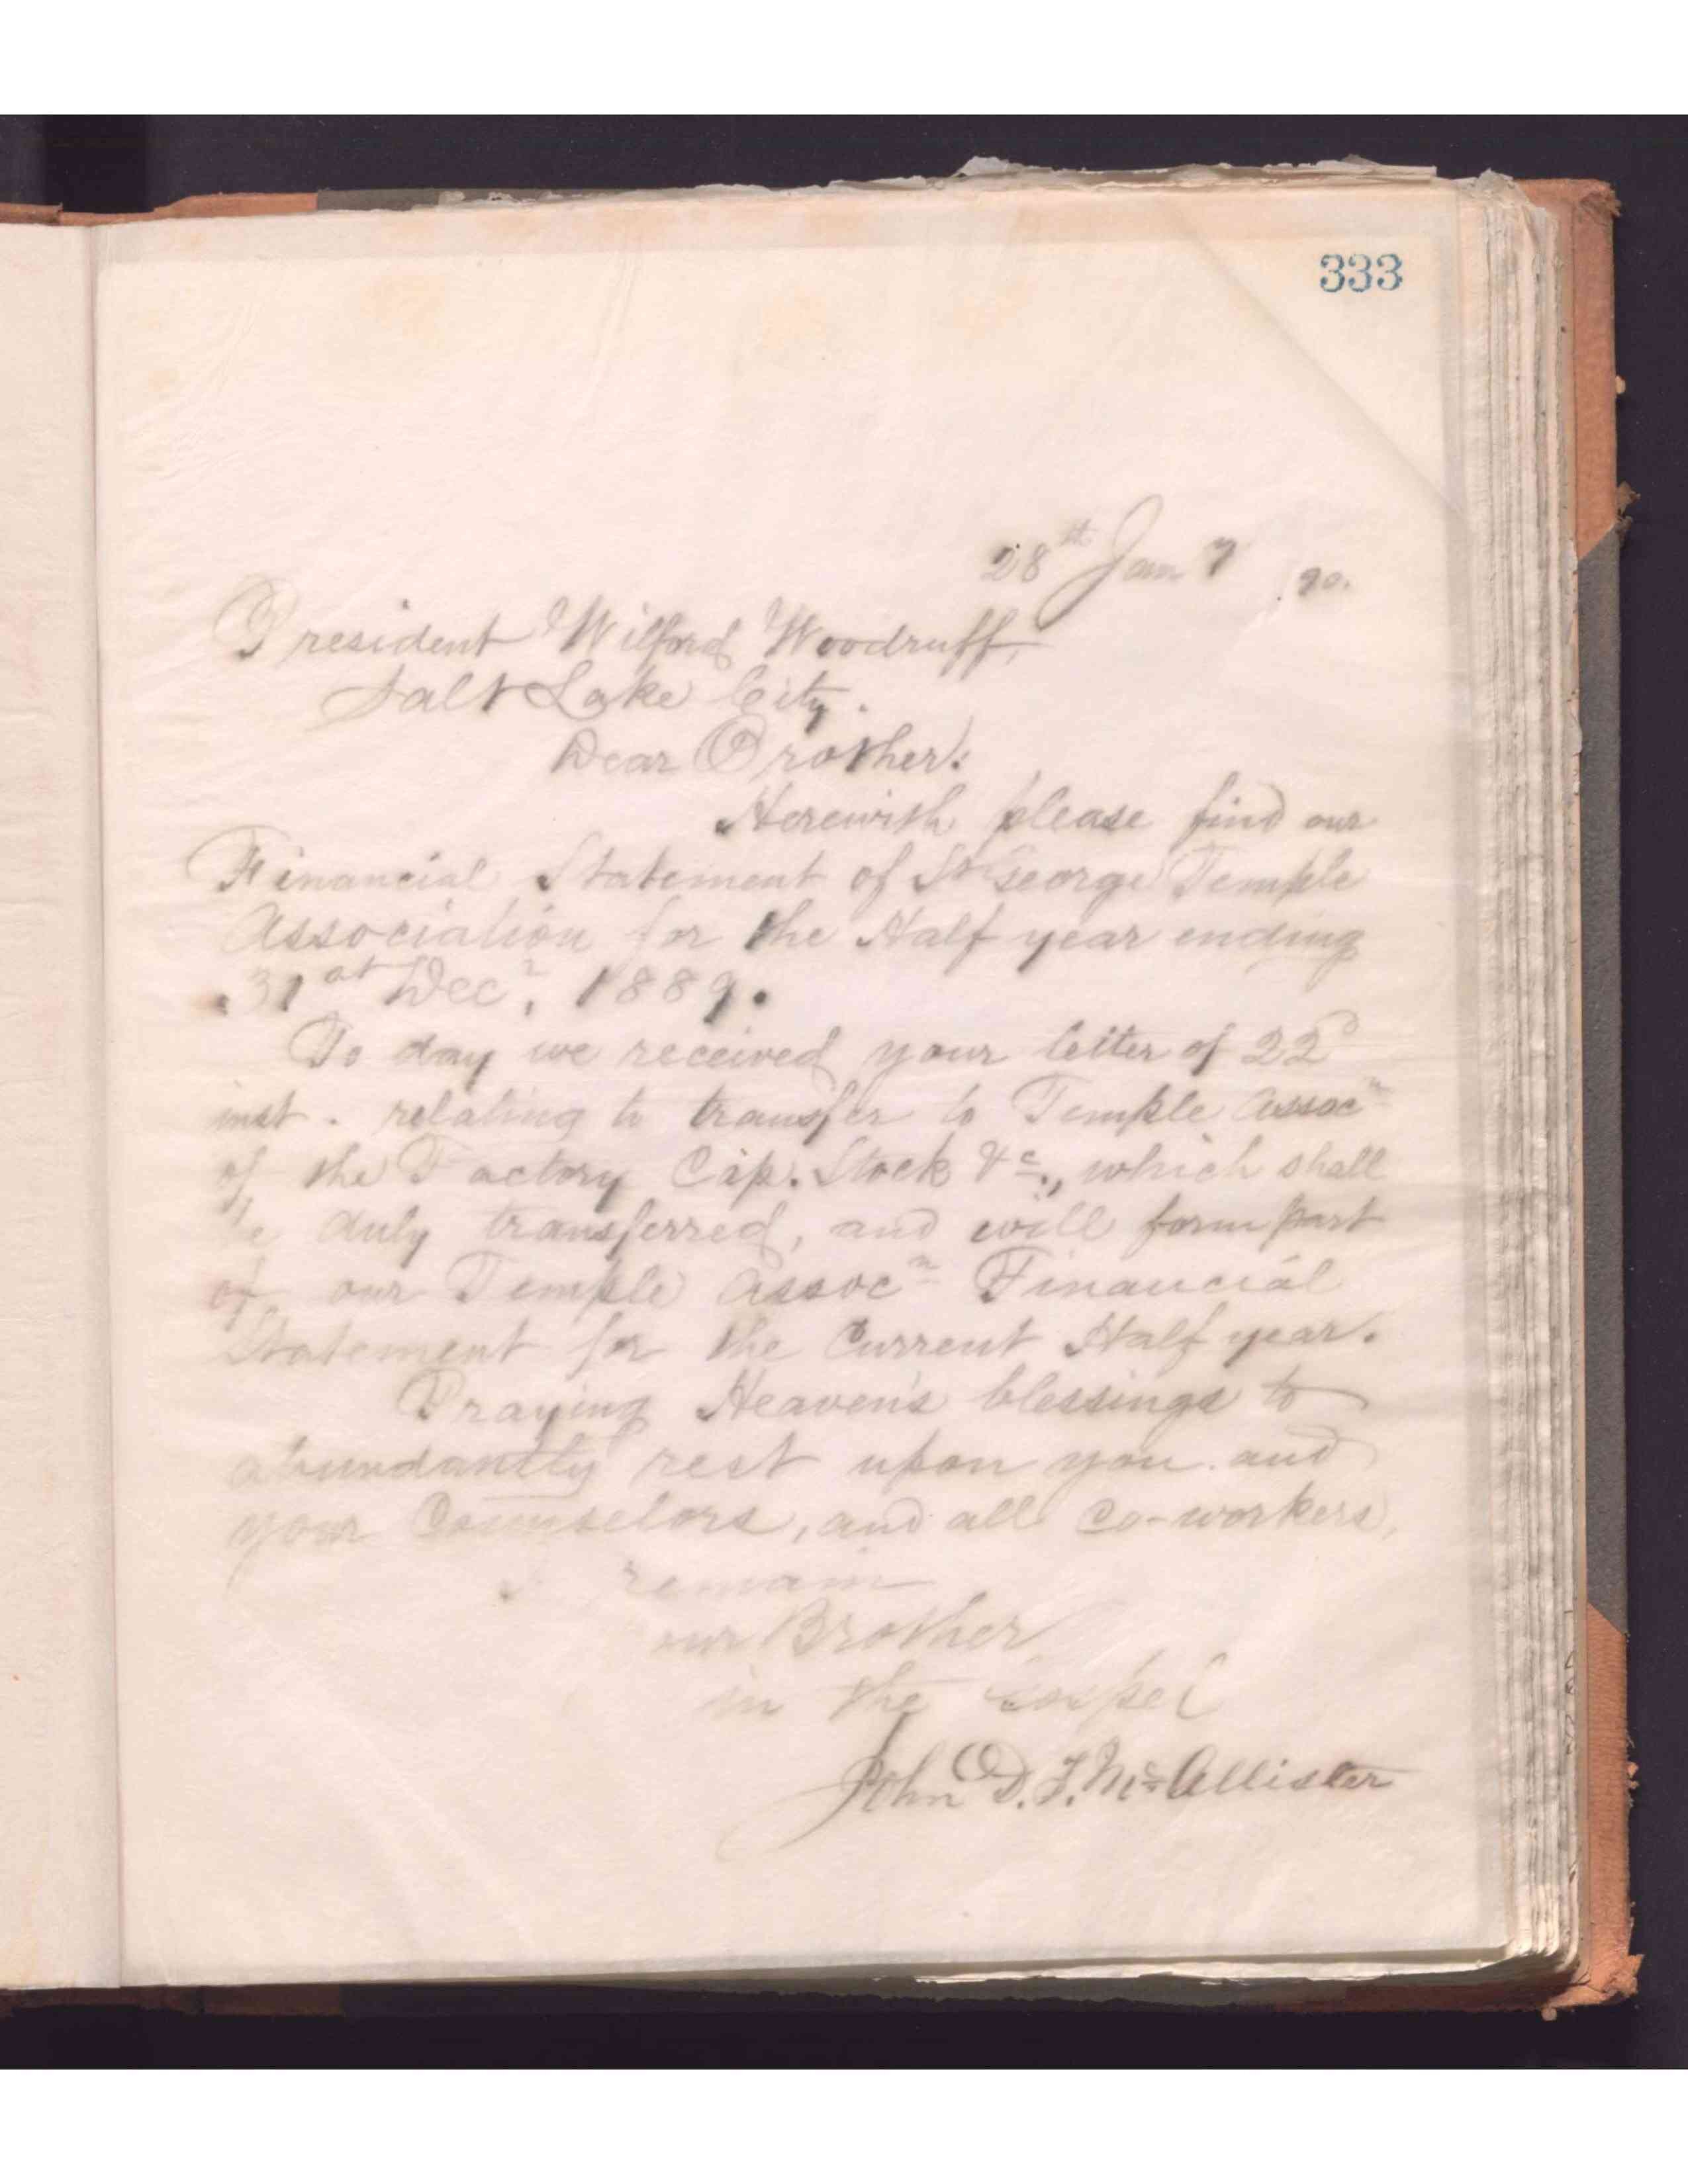 333
28th Jany 90.
President Wilford Woodruff,
Salt Lake City.
Dear Brother:
Herewith please find our
Financial Statement of St George Temple
Association for the Half year ending
31st Decr, 1889.
To day we received your letter of 22d
inst. relating to transfer to Temple Assocn
of the Factory Cap. Stock &c., which shall
be duly transferred, and will form part
of our Temple Assocn Financial
Statement for the Current Half year.
Praying Heaven's blessings to
abundantly rest upon you and
your Counselors, and all Co-workers,
I remain
our Brother
in the Gospel
John D. T. McAllister